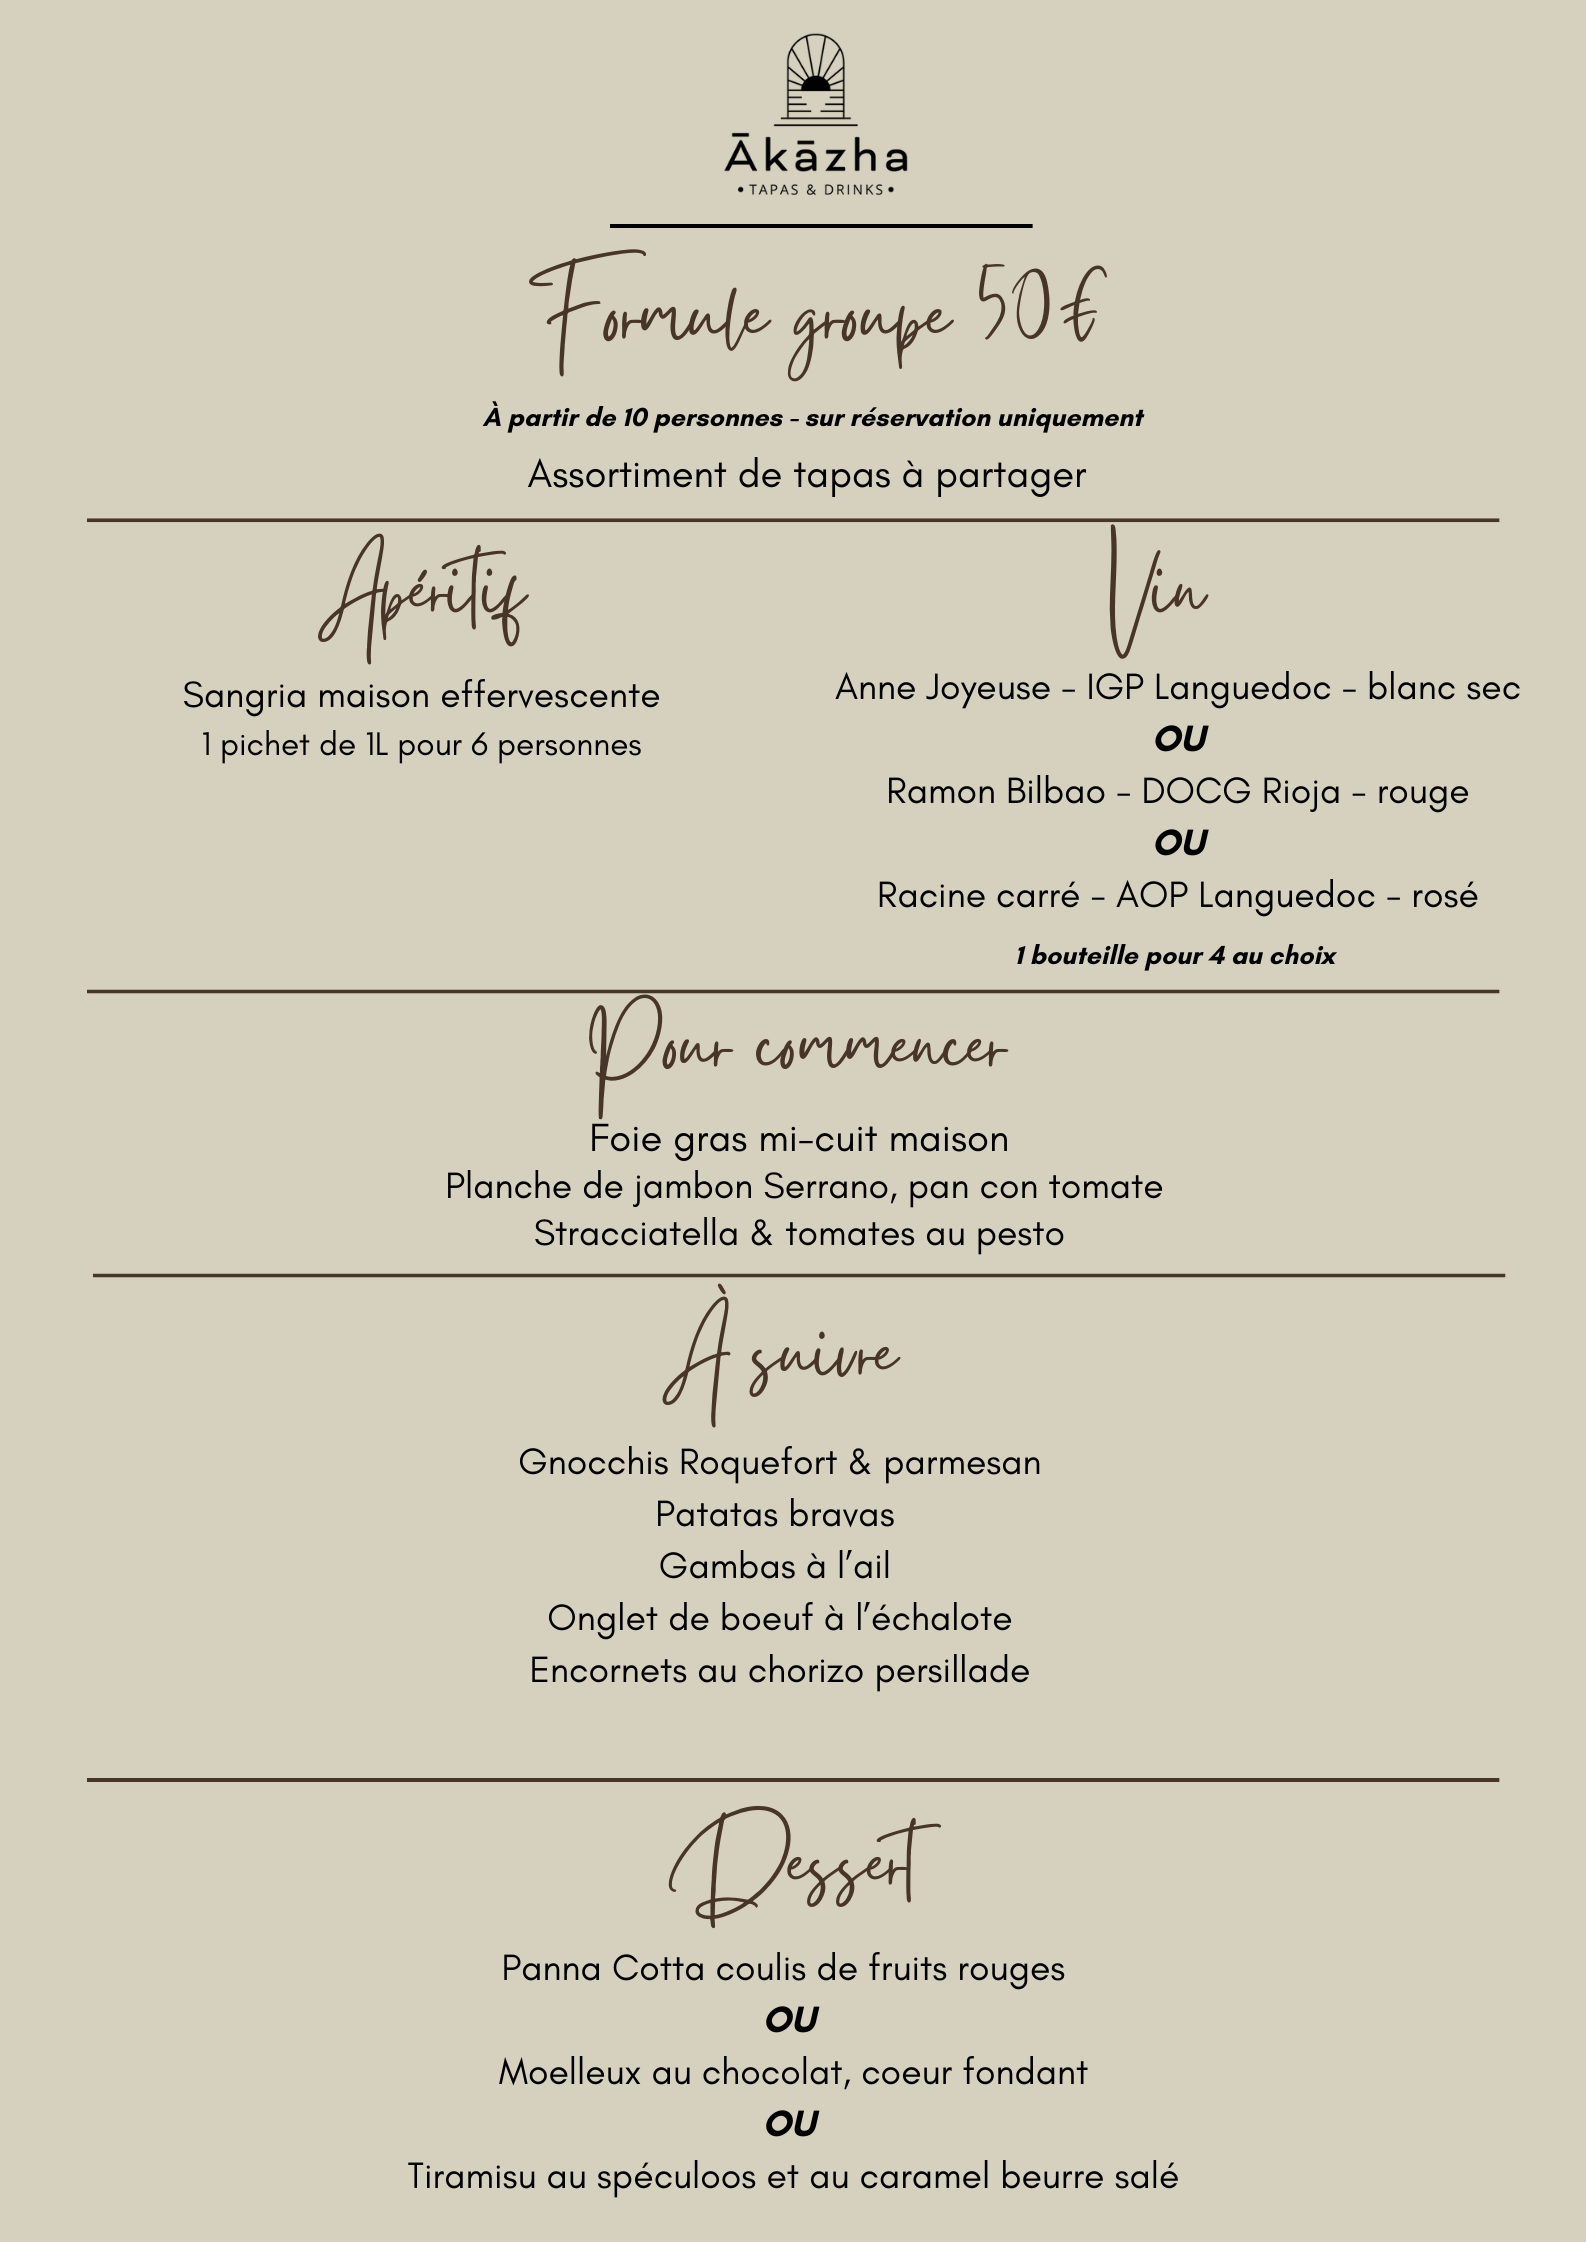 Ākāzha
• TAPAS & DRINKS •
Formule groupe 50€
À partir de 10 personnes - sur réservation uniquement
Assortiment de tapas à partager
Apéritif
Sangria maison effervescente
1 pichet de 1L pour 6 personnes
Vin
Anne Joyeuse - IGP Languedoc - blanc sec
OU
Ramon Bilbao - DOCG Rioja - rouge
OU
Racine carré - AOP Languedoc - rosé
1 bouteille pour 4 au choix
Pour commencer
Foie gras mi-cuit maison
Planche de jambon Serrano, pan con tomate
Stracciatella & tomates au pesto
À suivre
Gnocchis Roquefort & parmesan
Patatas bravas
Gambas à l’ail
Onglet de boeuf à l’échalote
Encornets au chorizo persillade
Dessert
Panna Cotta coulis de fruits rouges
OU
Moelleux au chocolat, coeur fondant
OU
Tiramisu au spéculoos et au caramel beurre salé